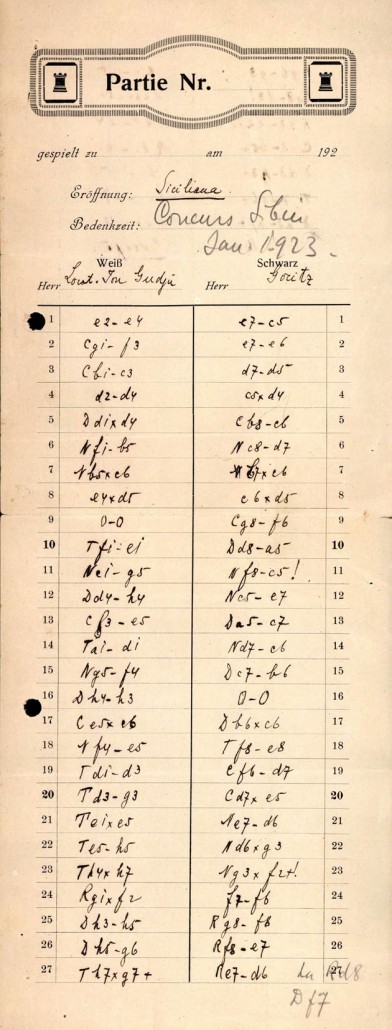 Partie Nr.
gespielt zu am 192
Eröffnung: Siciliana
Bedenkzeit: Concurs Sibiu
Jan 1923.
Weiß Schwarz
Herr Locot. Ion Gudju Herr Goritz
1 e2-e4 e7-c5 1
2 Cgi-f3 e7-e6 2
3 Cbi-c3 d7-d5 3
4 d2-d4 c5xd4 4
5 Ddixd4 Cb8-c6 5
6 Nfi-b5 Nc8-d7 6
7 Nb5xc6 b7xc6 7
8 e4xd5 c6xd5 8
9 0-0 Cg8-f6 9
10 Tfi-ei Dd8-a5 10
11 Nci-g5 Nf8-c5! 11
12 Dd4-h4 Nc5-e7 12
13 Cf3-e5 Da5-c7 13
14 Tai-di Nd7-c6 14
15 Ng5-f4 Dc7-b6 15
16 Dh4-h3 0-0 16
17 Ce5xc6 Db6xc6 17
18 Nf4-e5 Tf8-e8 18
19 Tdi-d3 Cf6-d7 19
20 Td3-g3 Cd7xe5 20
21 Teixe5 Ne7-d6 21
22 Te5-h5 Nd6xg3 22
23 Th4xh7 Ng3xf2+! 23
24 Rgixf2 f7-f6 24
25 Dh3-h5 Rg8-f8 25
26 Dh5-g6 Rf8-e7 26
27 Th7xg7+ Re7-d6 27
Rd8
Df7